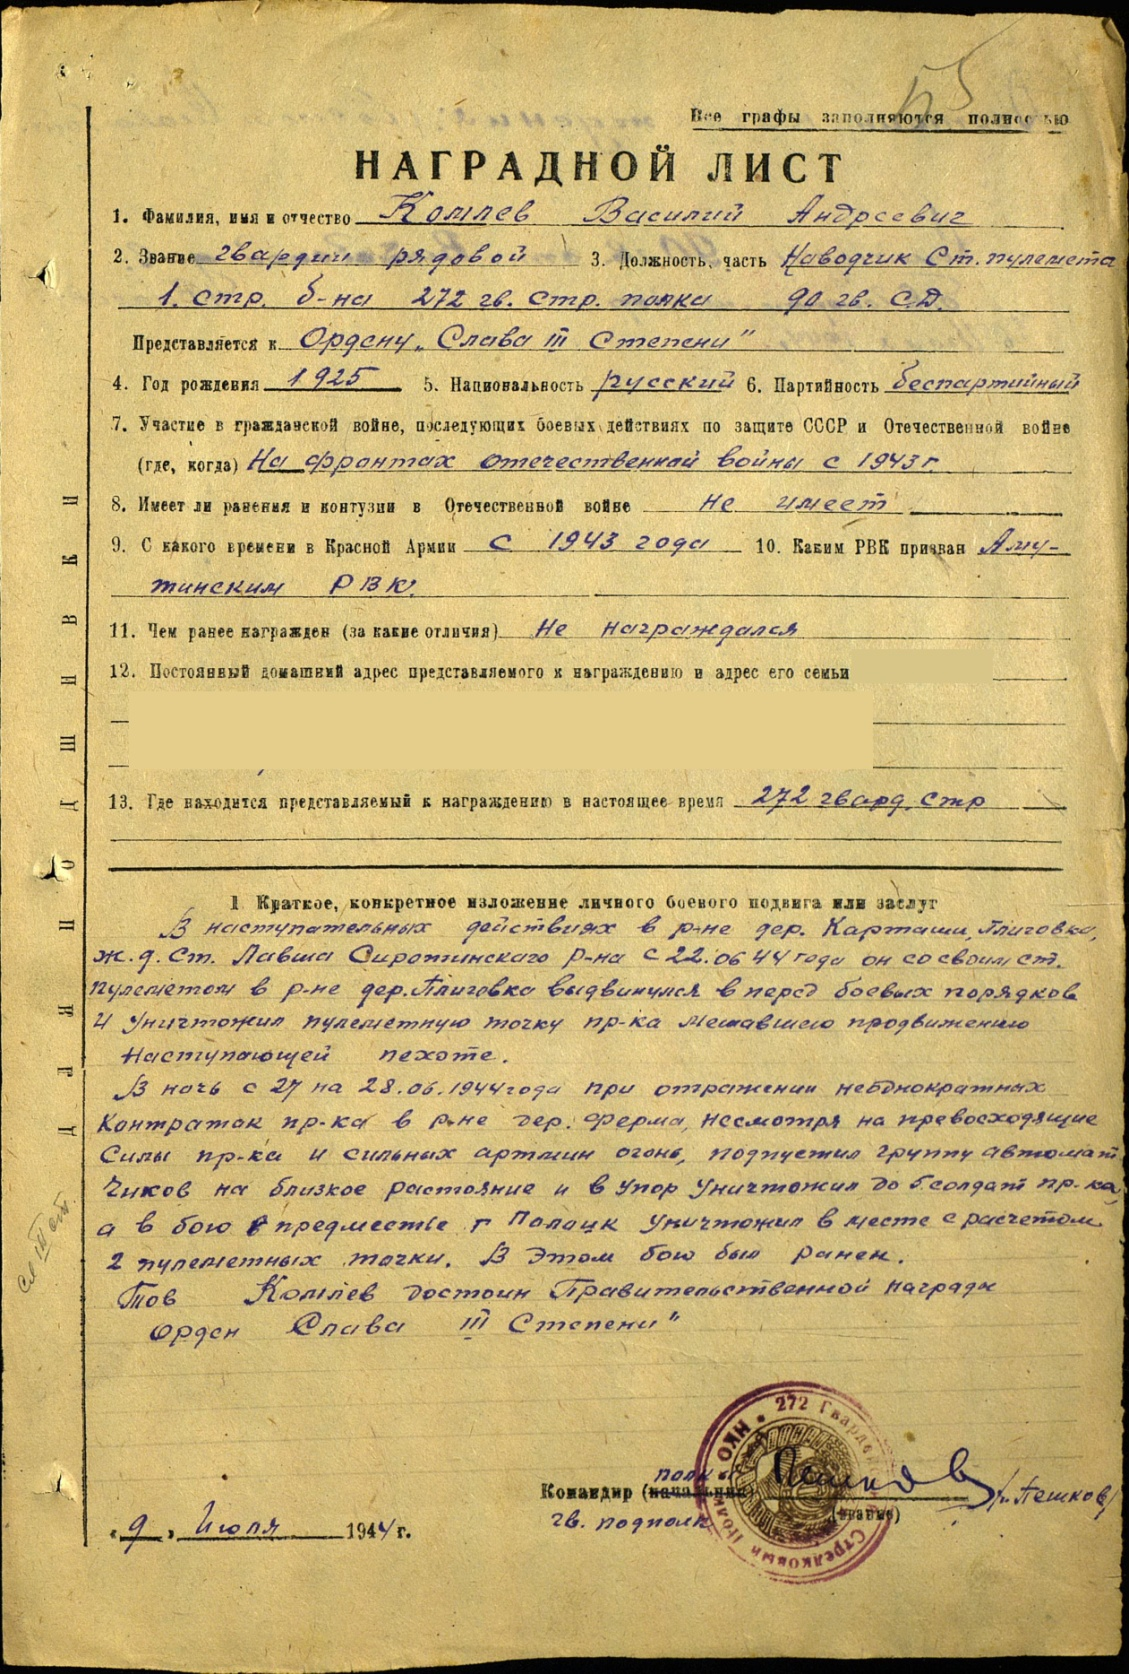 55
Все графы заполняются полностью
НАГРАДНОЙ ЛИСТ
1. Фамилия, имя и отчество Комлев Василий Андреевич
2. Звание гвардии рядовой 3. Должность, часть Наводчик Ст. пулемета
1. стр. б-на 272 гв. стр. полка 90 гв. С.Д.
Представляется к Ордену „Слава III Степени"
4. Год рождения 1925 5. Национальность русский 6. Партийность беспартийный
7. Участие в гражданской войне, последующих боевых действиях по защите СССР и Отечественной войне
(где, когда) На фронтах отечественной войны с 1943 г.
8. Имеет ли ранения и контузии в Отечественной войне не имеет
9. С какого времени в Красной Армии с 1943 года 10. Каким РВК призван Аму-
тинским РВК.
11. Чем ранее награжден (за какие отличия) Не награждался
12. Постоянный домашний адрес представляемого к награждению и адрес его семьи
13. Где находится представляемый к награждению в настоящее время 272 гвард. стр
1 Краткое, конкретное изложение личного боевого подвига или заслуг
В наступательных действиях в р-не дер. Карташи, Плиговка,
ж.д. ст. Лавша Сиротинскаго р-на с 22.06 44 года он со своим ст.
пулеметом в р-не дер. Плиговка выдвинулся в перед боевых порядков
и уничтожил пулеметную точку пр-ка мешавшею продвижению
наступающей пехоте.
В ночь с 27 на 28.06.1944 года при отражении неоднократных
Контратак пр-ка в р-не дер. Ферма, несмотря на превосходящие
силы пр-ка и сильных артмин огонь, подпустил группу автомат
чиков на близкое растояние и в упор уничтожил до 5 солдат пр-ка,
а в бою в предместье г Полоцк уничтожил в месте с расчетом
2 пулеметных точки. В этом бою был ранен.
Тов Комлев достоин Правительственной награды
орден Слава III Степени"
ДЛЯ ПОДШИВКИ
272 Гвардейский Стрелковый Полк • НКО •
полка
Командир (начальник) Пешков /Пешков/
гв. подполк (звание)
„ 9 „ Июля 1944 г.